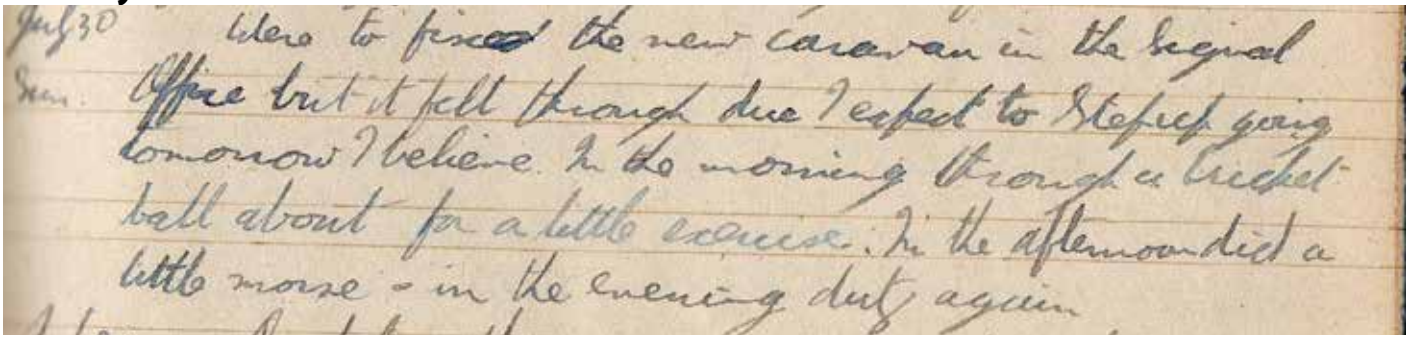 July 30 Were to fixed the new caravan in the Signal
Sun. Office but it fell through due I expect to Stepup going
tomorrow I believe. In the morning through a cricket
ball about for a little exercise. In the afternoon did a
little morse - in the evening duty again